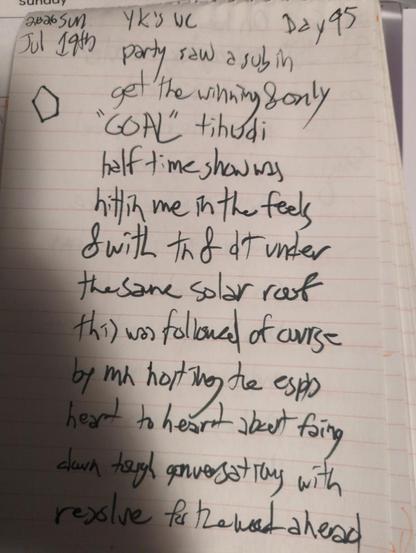 Sunday
2026 Sun YK's UC Day 95
Jul 19th party saw a sub in
get the winning & only
"GOAL" tihudi
half time show was
hittin me in the feels
& with tn & dt under
the same solar roof
this was followed of course
by mh hosting the espb
heart to heart about facing
down tough conversations with
resolve for the ahead